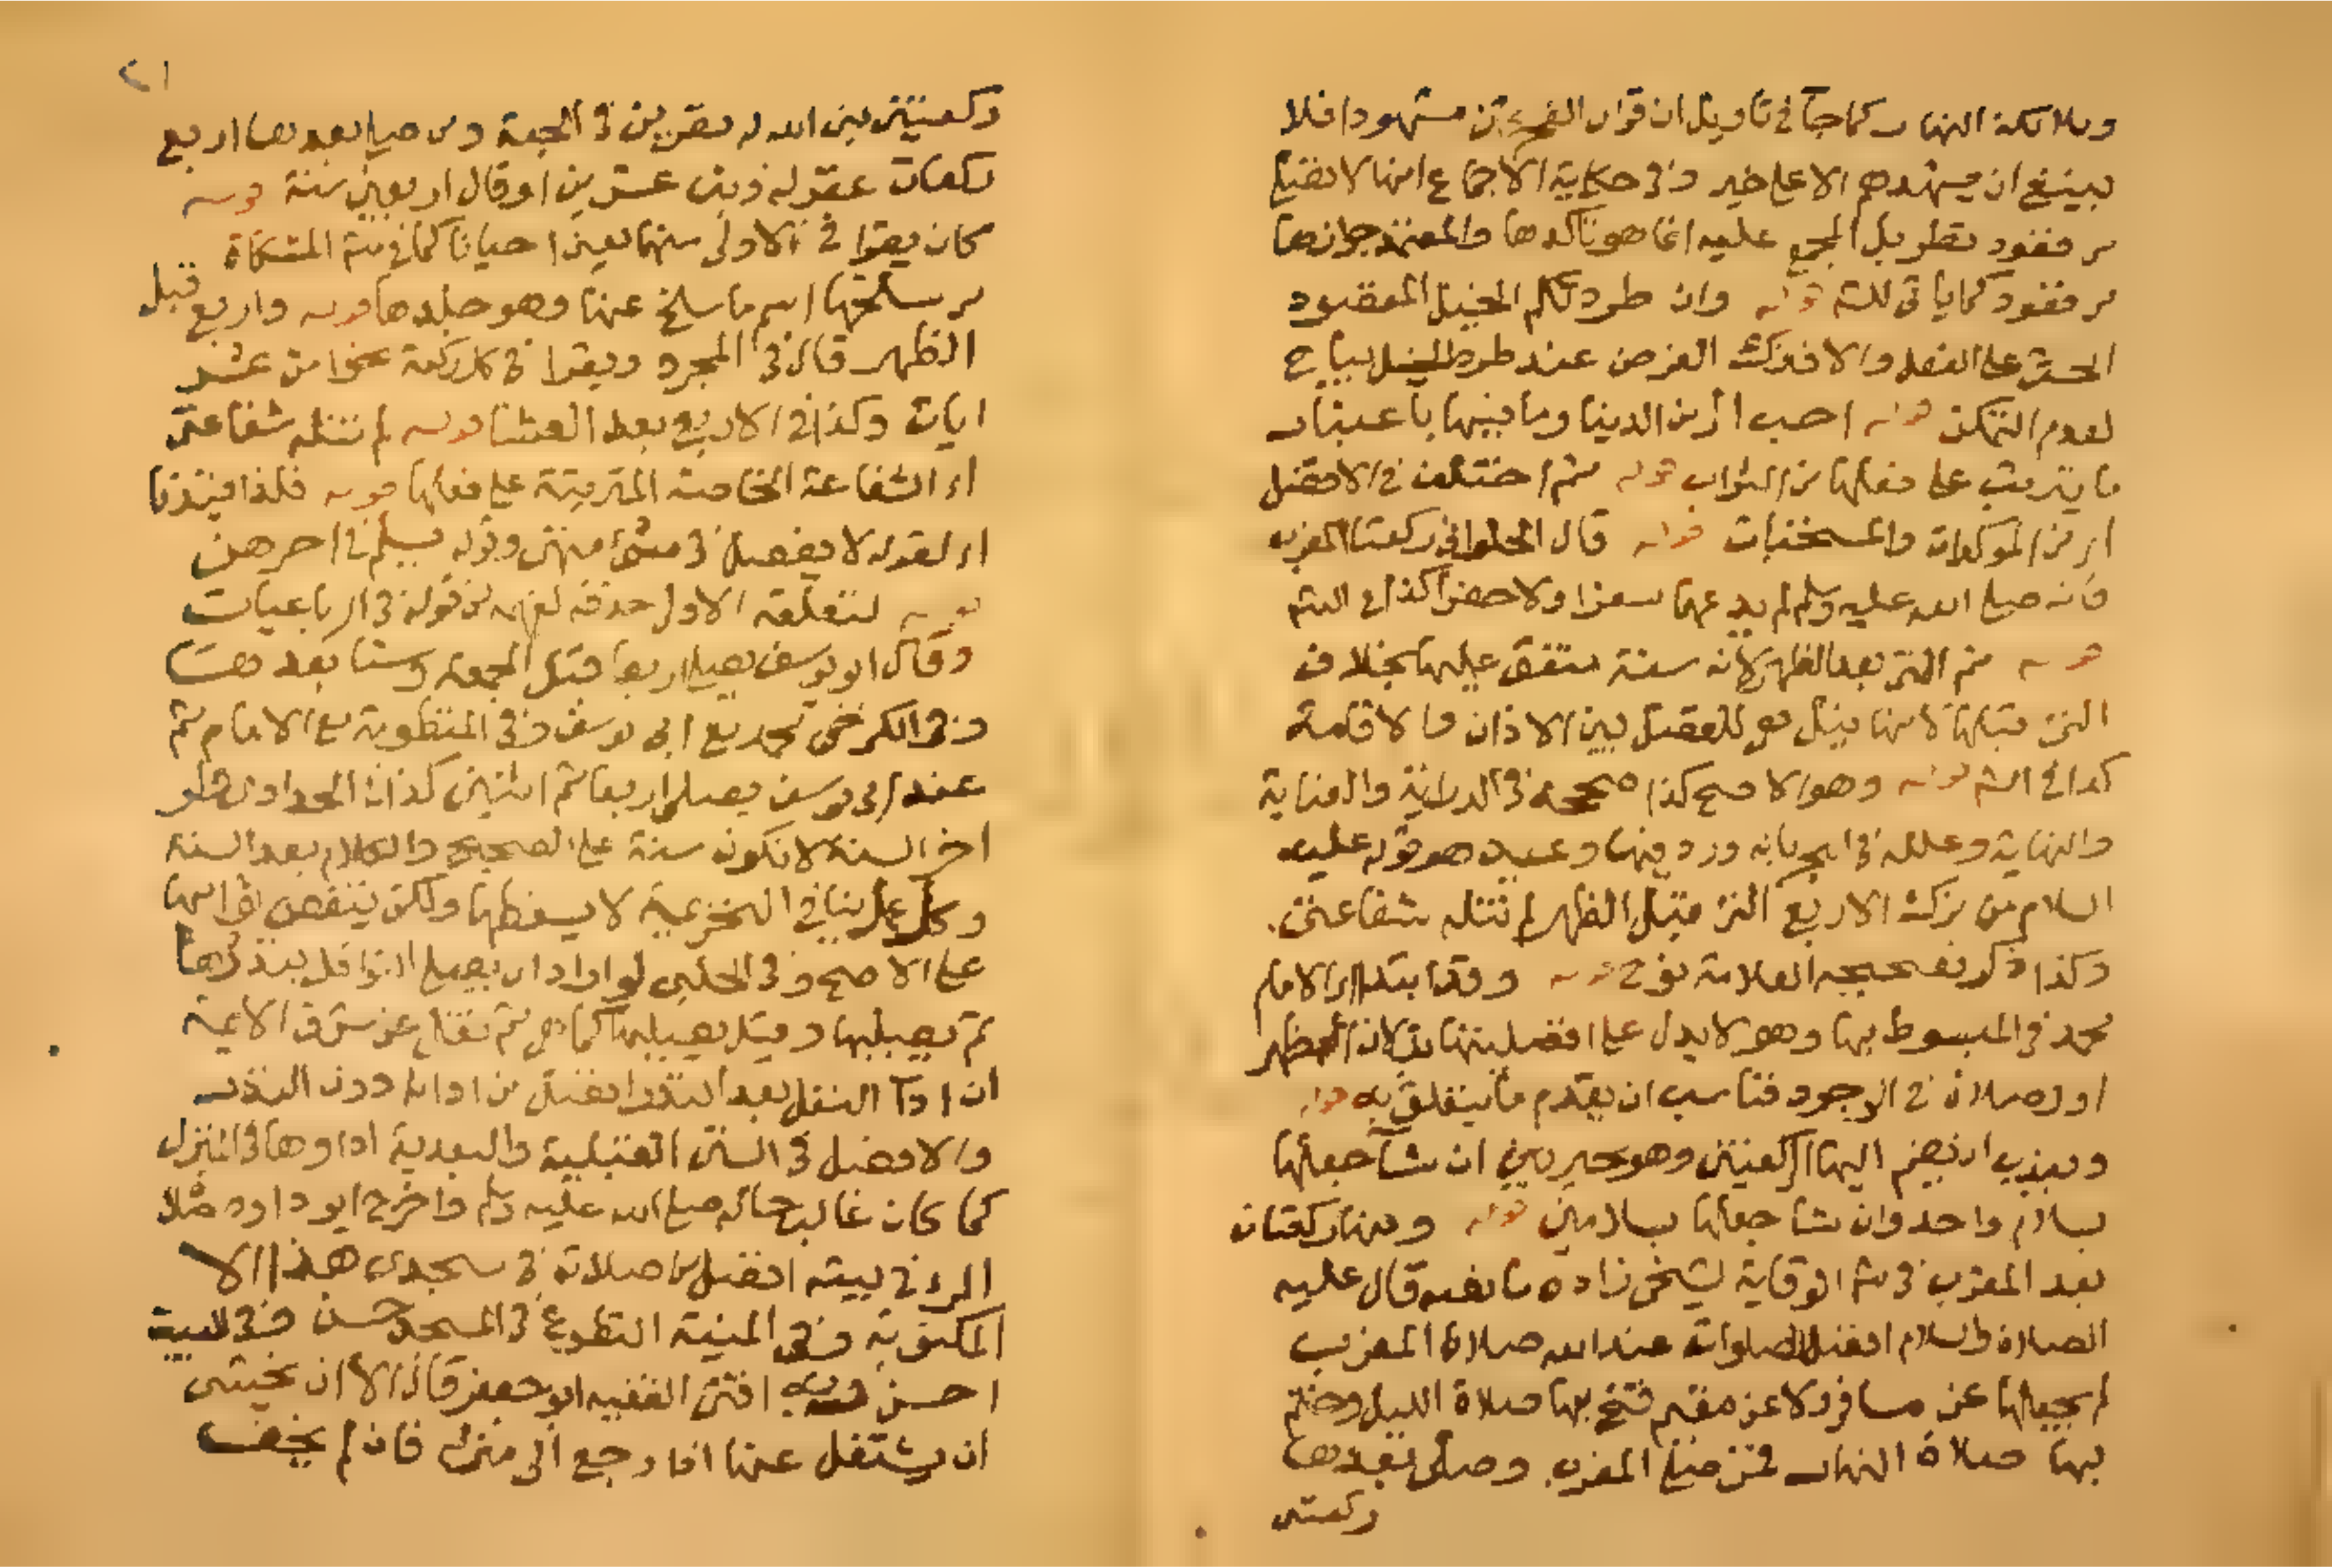 وملائكة النهار كما جآ في تاويل ان قران الفجر كان مشهودا فلا
ينبغي ان يشهدهم الا على خير وفي حكاية الاجماع انها لا تقضى
من قعود نظر بل المجمع عليه انما هو تأكدها والمعتمد جوازها
من قعود كما ياتي للش قوله وان طردتكم الخيل المقصود
الحث على الفعل والا فترك الفرض عند طرد الخيل يباح
لعدم التمكن قوله احب الي من الدنيا وما فيها باعتبار
ما يترتب على فعلها من الثواب قوله ثم اختلف في الافضل
اي من الموكدات والمستحبات قوله قال الحلواني ركعتا المغرب
فانه صلى الله عليه وسلم لم يدعهما سفرا ولا حضرا كذا في الش
قوله ثم التي بعد الظهر لانه سنة متفق عليها بخلاف
التي قبلها لانها قيل هي للفصل بين الاذان والاقامة
كذا في الش قوله وهو الاصح كذا صححه في الدراية والعناية
والنهاية وعلله في البحر بانه ورد فيها وعيد هو قوله عليه
السلام من ترك الاربع التي قبل الظهر لم تنله شفاعتي
وكذا ذكر تصحيحه العلامة نوح قوله وقد ابتدا الامام
محمد في المبسوط بها وهو لا يدل على افضليتها بل لان الظهر
اول صلاة في الوجود فناسب ان يقدم ما يتعلق به قوله
وندب ان يضم اليها الركعتين وهو مخير بين ان شآ جعلها
بسلام واحد وان شا جعلها بسلامين قوله ومنها ركعتان
بعد المغرب في ش الوقاية لشيخي زاده ما نصه قال عليه
الصلاة والسلام افضل الصلوات عند الله صلاة المغرب
لم يحطها عن مسافر ولا عن مقيم فتح بها صلاة الليل وختم
بها صلاة النهار فمن صلى المغرب وصلى بعدها
ركعتى
٢١
ركعتين بنى الله له قصرين في الجنة ومن صلى بعدها اربع
ركعات غفر له ذنب عشرين او قال اربعين سنة قوله
كان يقرا في الاولى منهما احيانا كما في ش المشكاة
من سلخها اسم ما سلخ عنها وهو جلدها قوله واربع قبل
الظهر قال في المجرد ويقرا في كل ركعة نحوا من عشر
ايات وكذا في الاربع بعد العشا قوله لم تنله شفاعتي
اي الشفاعة الخاصة المترتبة على فعلها قوله فلذا قيدنا
اي لقوله لا يفصل في شئ منهن وقوله يسلم في اخرهن
قوله لتعلقه الاول حذفه لفهمه من قوله في الرباعيات
وقال ابو يوسف يصلي اربعا قبل الجمعة وستا بعدها
وفي الكرخي محمد مع ابي يوسف وفي المنظومة مع الامام ثم
عند ابي يوسف يصلي اربعا ثم اثنتين كذا في الحدادي
اخر السنة لا تكون سنة على الصحيح والكلام بعد السنة
وكل عمل ينافي التحريمة لا يسقطها ولكن ينقص ثوابها
على الاصح وفي الحلبي لو اراد ان يصلي النوافل ينذرها
ثم يصليها وقيل يصليها كما هي ثم نقل عن شرف الائمة
ان ادآ النفل بعد النذر افضل من ادائه دون النذر
والافضل في السنن القبلية والبعدية اداوها في المنزل
كما كان غالب حاله صلى الله عليه وسلم واخرج ابو داود صلاة
المرء في بيته افضل من صلاته في مسجدي هذا الا
المكتوبة وفي المنية التطوع في المسجد حسن وفي البيت
احسن وبه افتى الفقيه ابو جعفر قال الا ان يخشى
ان يشتغل عنها اذا رجع الى منزله فان لم يخف